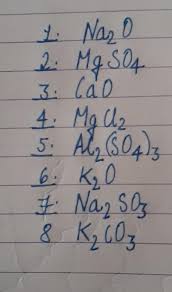 1: Na₂O
2: MgSO₄
3: CaO
4: MgCl₂
5: Al₂(SO₄)₃
6: K₂O
7: Na₂SO₃
8 K₂CO₃